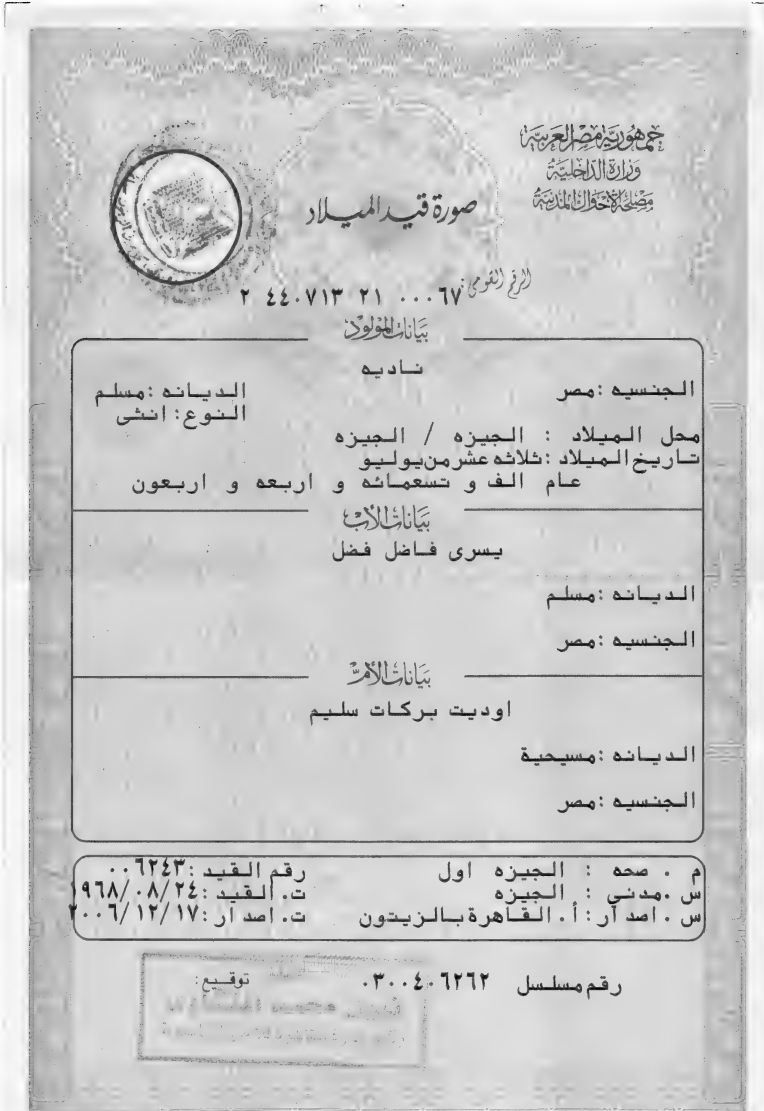 جمهورية مصر العربية
وزارة الداخلية
مصلحة الأحوال المدنية
صورة قيد الميلاد
الرقم القومى: ٢ ٤٤٠٧١٣ ٢١ ٠٠٠٦٧
بيانات المولود
ناديه
الجنسيه :مصر الديانه :مسلم
النوع: انثى
محل الميلاد : الجيزه / الجيزه
تاريخ الميلاد :ثلاثه عشر من يوليو
عام الف و تسعمائه و اربعه و اربعون
بيانات الأب
يسرى فاضل فضل
الديانه :مسلم
الجنسيه :مصر
بيانات الأم
اوديت بركات سليم
الديانه :مسيحية
الجنسيه :مصر
م . صحه : الجيزه اول رقم القيد :٠٠٦٢٤٣
س .مدني : الجيزه ت. القيد :١٩٦٨/٠٨/٢٤
س . اصدار : أ. القاهرة بالزيتون ت. اصدار :٢٠٠٦/١٢/١٧
رقم مسلسل ٠٣٠٠٤٠٦٢٦٢ توقيع: